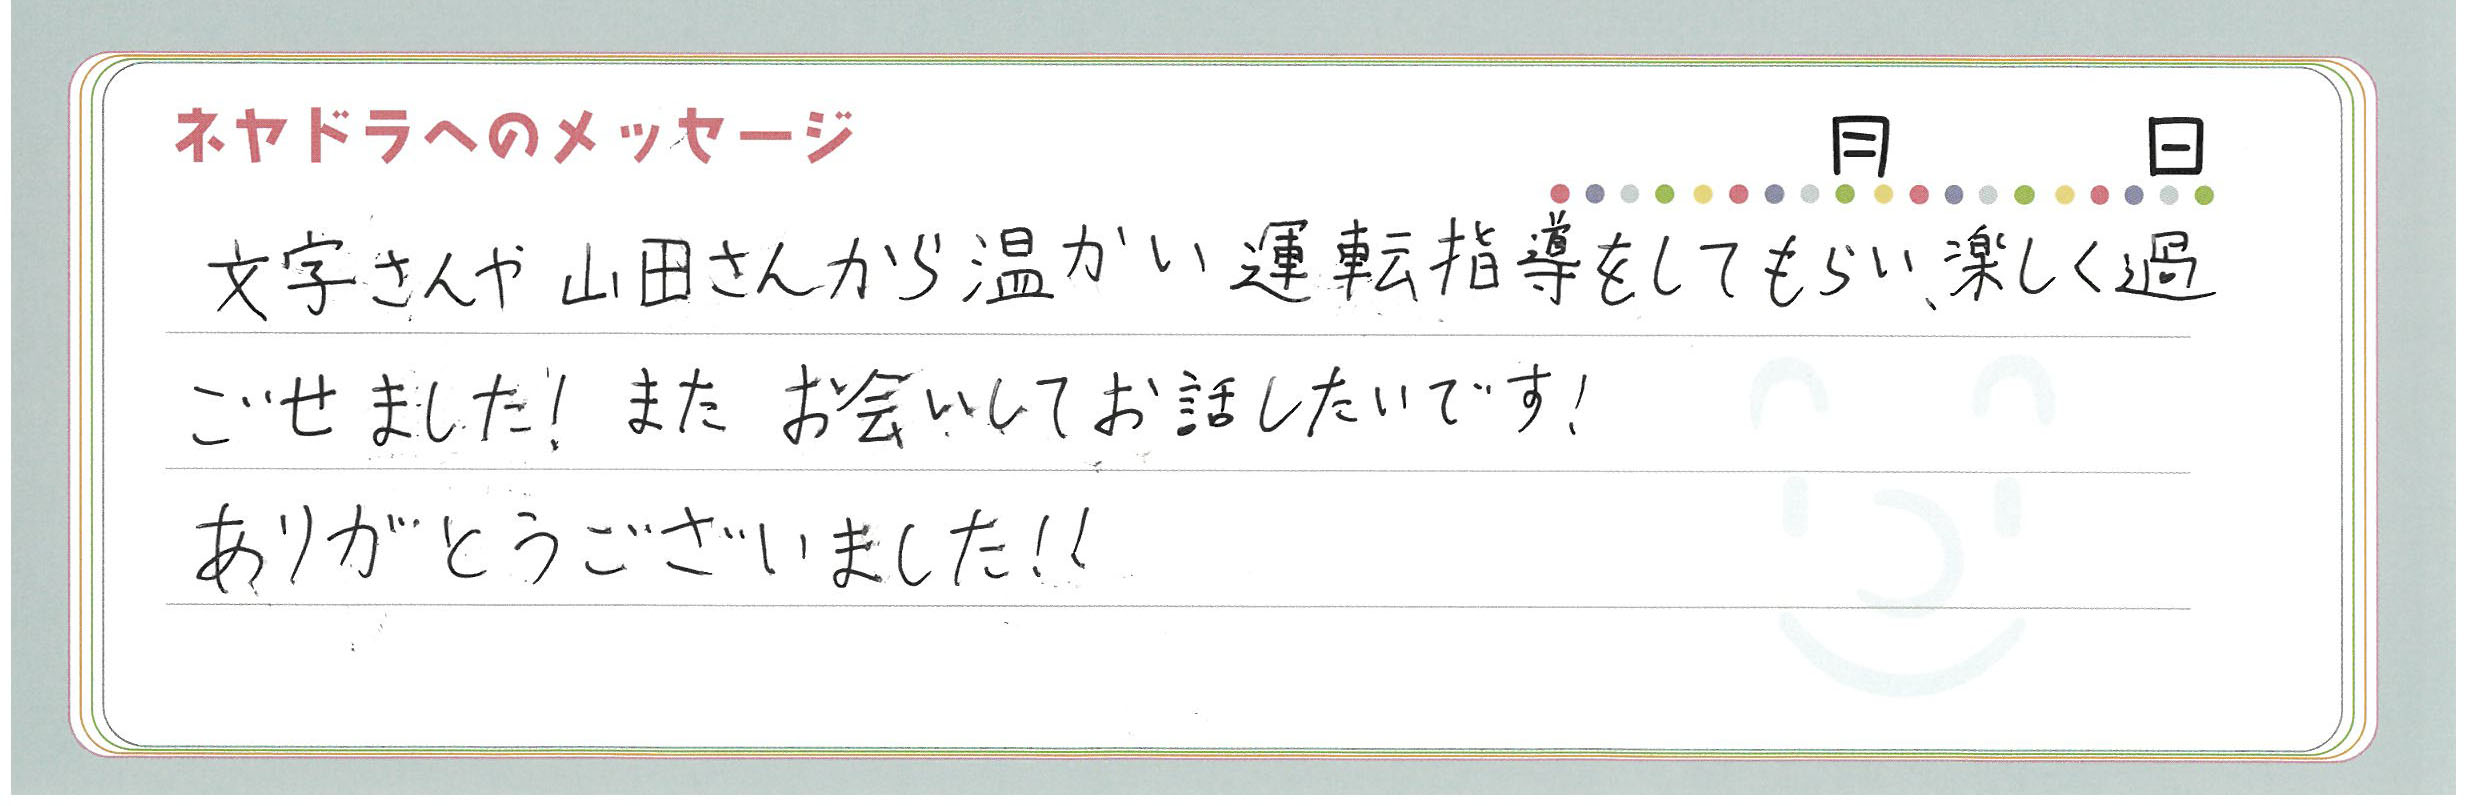 ネヤドラへのメッセージ
月 日
文字さんや山田さんから温かい運転指導をしてもらい、楽しく過
ごせました！また お会いしてお話したいです！
ありがとうございました！！